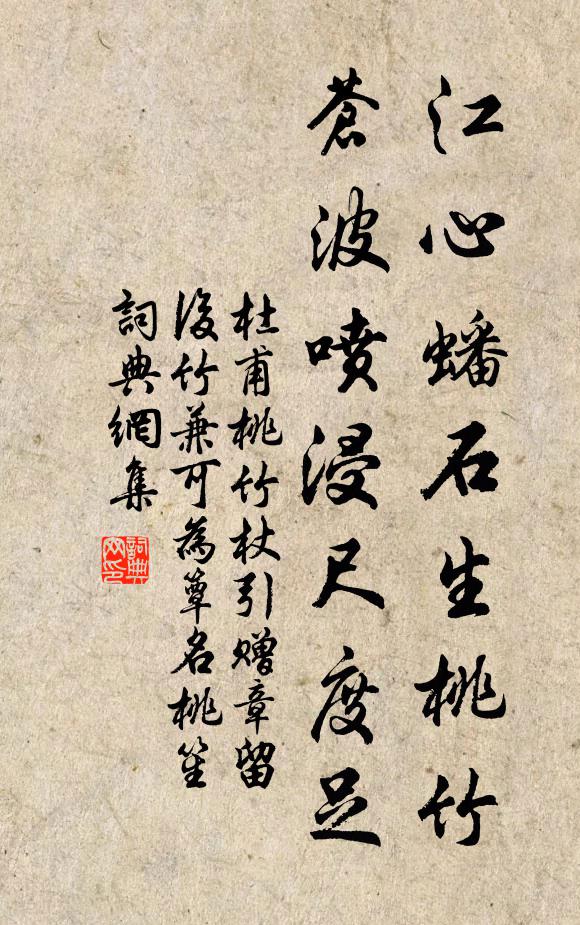 江心蟠石生桃竹
蒼波噴浸尺度足
杜甫桃竹杖引贈章留
後竹兼可為簟名桃笙
詞典網集
詞典網印